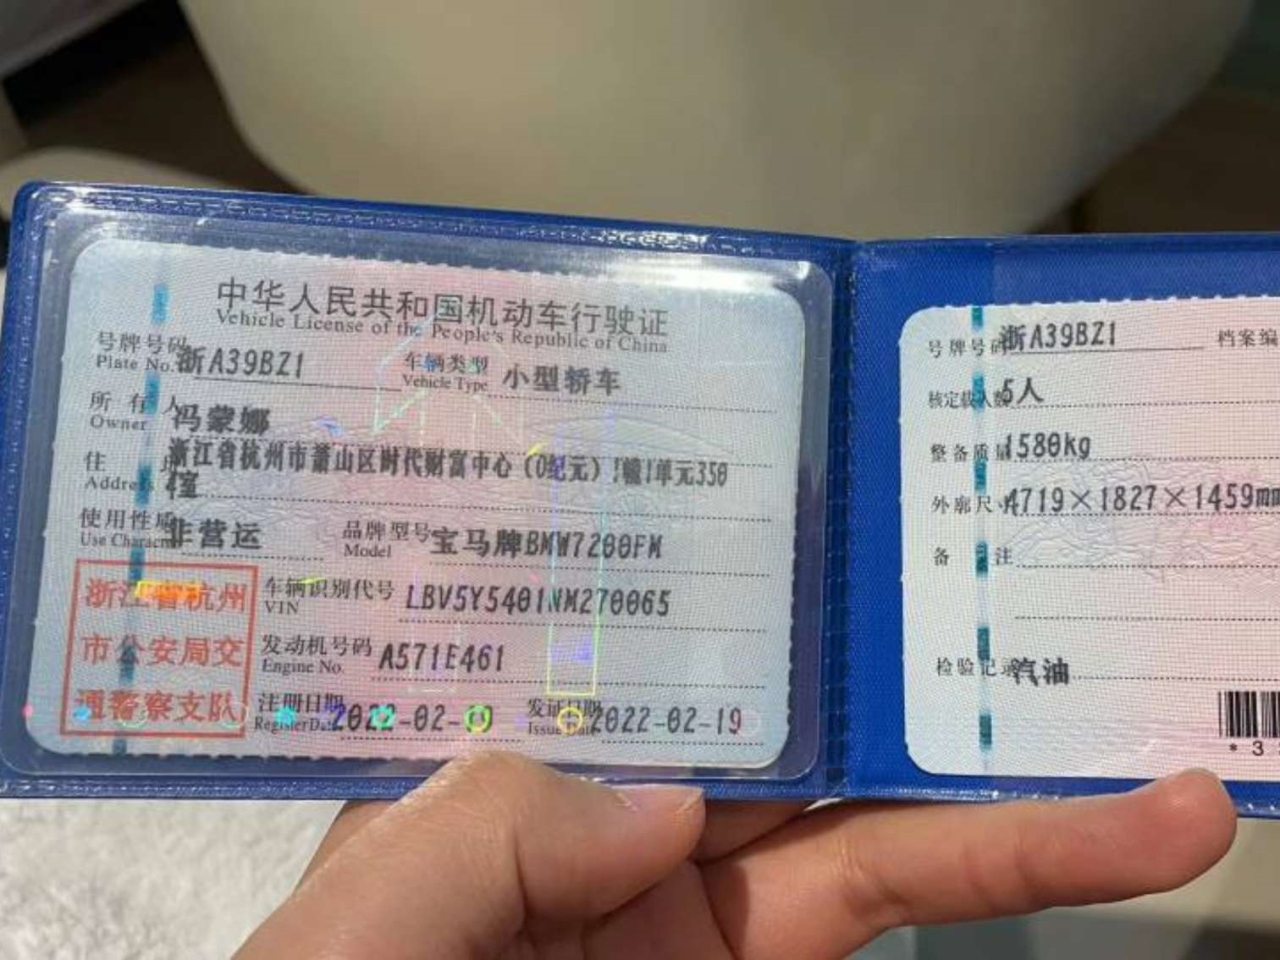 中华人民共和国机动车行驶证
Vehicle License of the People's Republic of China
号牌号码 浙A39BZ1 车辆类型 小型轿车
Plate No. Vehicle Type
所有人 冯蒙娜
Owner
住 浙江省杭州市萧山区时代财富中心(0纪元)1幢1单元350
Address 4室
使用性质 非营运 品牌型号 宝马牌BMW7200FM
Use Character Model
车辆识别代号 LBV5Y5401NM270065
VIN
发动机号码 A571E461
Engine No.
注册日期 2022-02-19 发证日期 2022-02-19
Register Date Issue Date
浙江省杭州
市公安局交
通警察支队
号牌号码 浙A39BZ1 档案编
核定载人数 5人
整备质量 1580kg
外廓尺寸 4719×1827×1459mm
备注
检验记录 汽油
*3